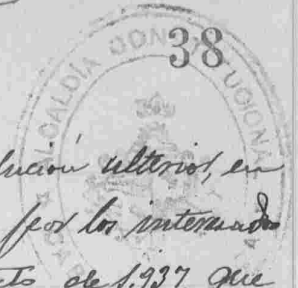 38
ALCALDÍA CONSTITUCIONAL
lución ulterior, en
por los internados
to de 1.937 que